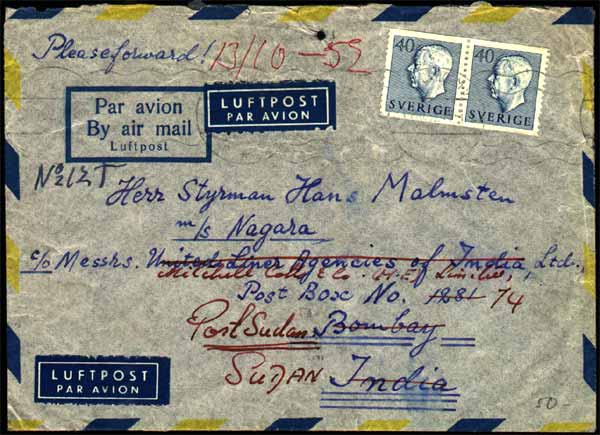 Please forward! 13/10 - 52
40 40
SVERIGE SVERIGE
Par avion
By air mail
Luftpost
LUFTPOST
PAR AVION
Herr Styrman Hans Malmsten
m/s Nagara
c/o Messrs. United Liner Agencies of India, Ltd.,
Mitchell Cotts & Co.
Post Box No. 1281 74
Port Sudan. Bombay
SUDAN India
LUFTPOST
PAR AVION
50-